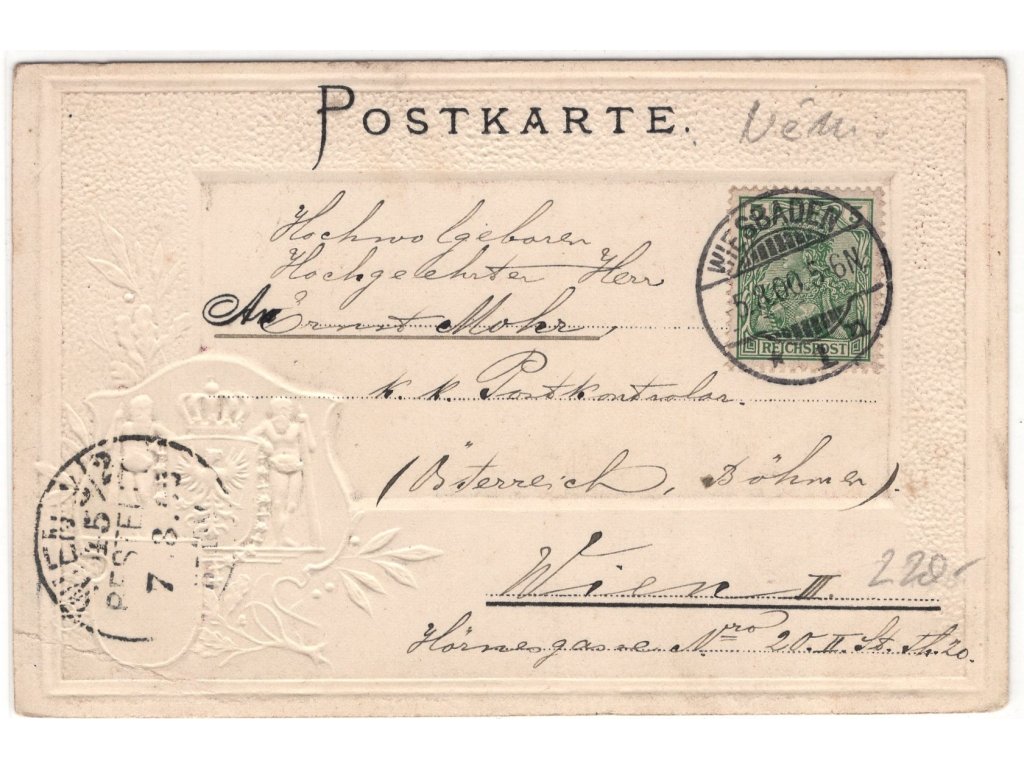 POSTKARTE.
Hochwolgeboren
Hochgeehrter Herr
An Ernst Mohr,
k. k. Postkontrolor.
(Österreich, Böhmen).
Wien III.
Hörnesgasse Nro 20. II. St. Th. 20.
220.-
WIESBADEN
5.8.00. 5-6N.
REICHSPOST
WIEN
BESTELLT
7 8.00